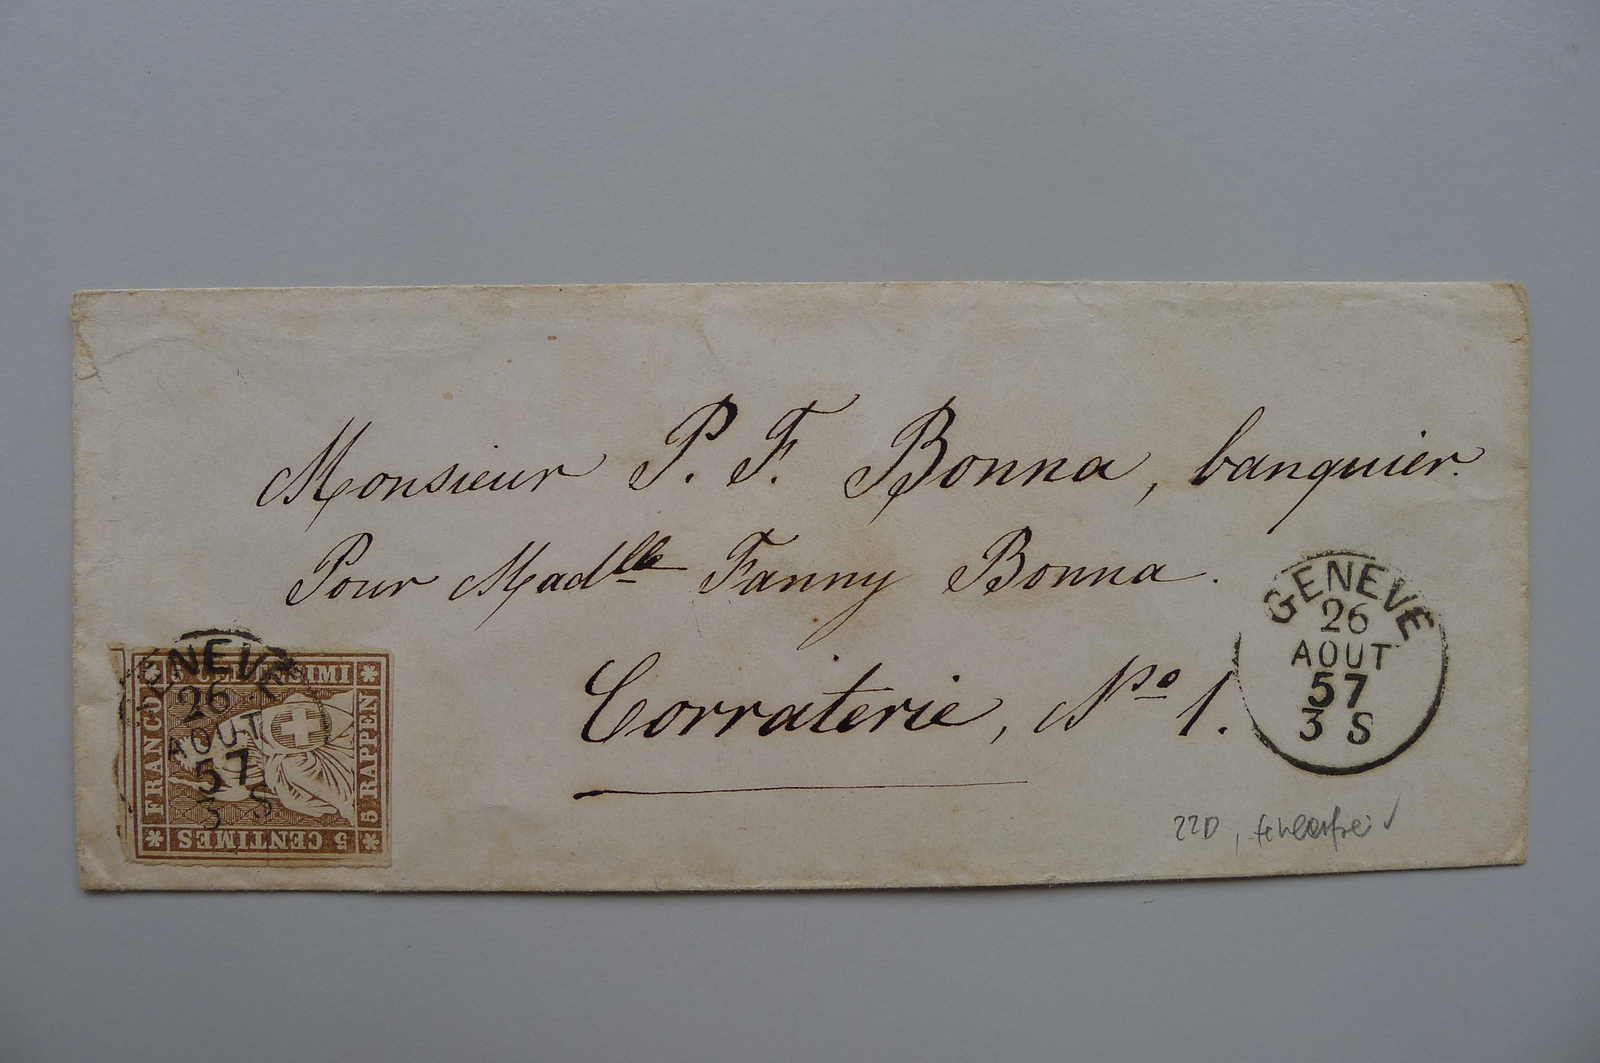 Monsieur P. F. Bonna, banquier.
Pour Madlle Fanny Bonna.
Corraterie, No 1.
GENEVE
26
AOUT
57
3 S
GENEVE
26
AOUT
57
3 S
FRANCO
5 CENTESIMI
5 RAPPEN
5 CENTIMES
22D, fehlerfrei ✓